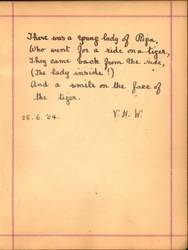 There was a young lady of Riga,
Who went for a ride on a tiger,
They came back from the ride,
(The lady inside!)
And a smile on the face of
the tiger.
25.6.'04.
V. H. W.